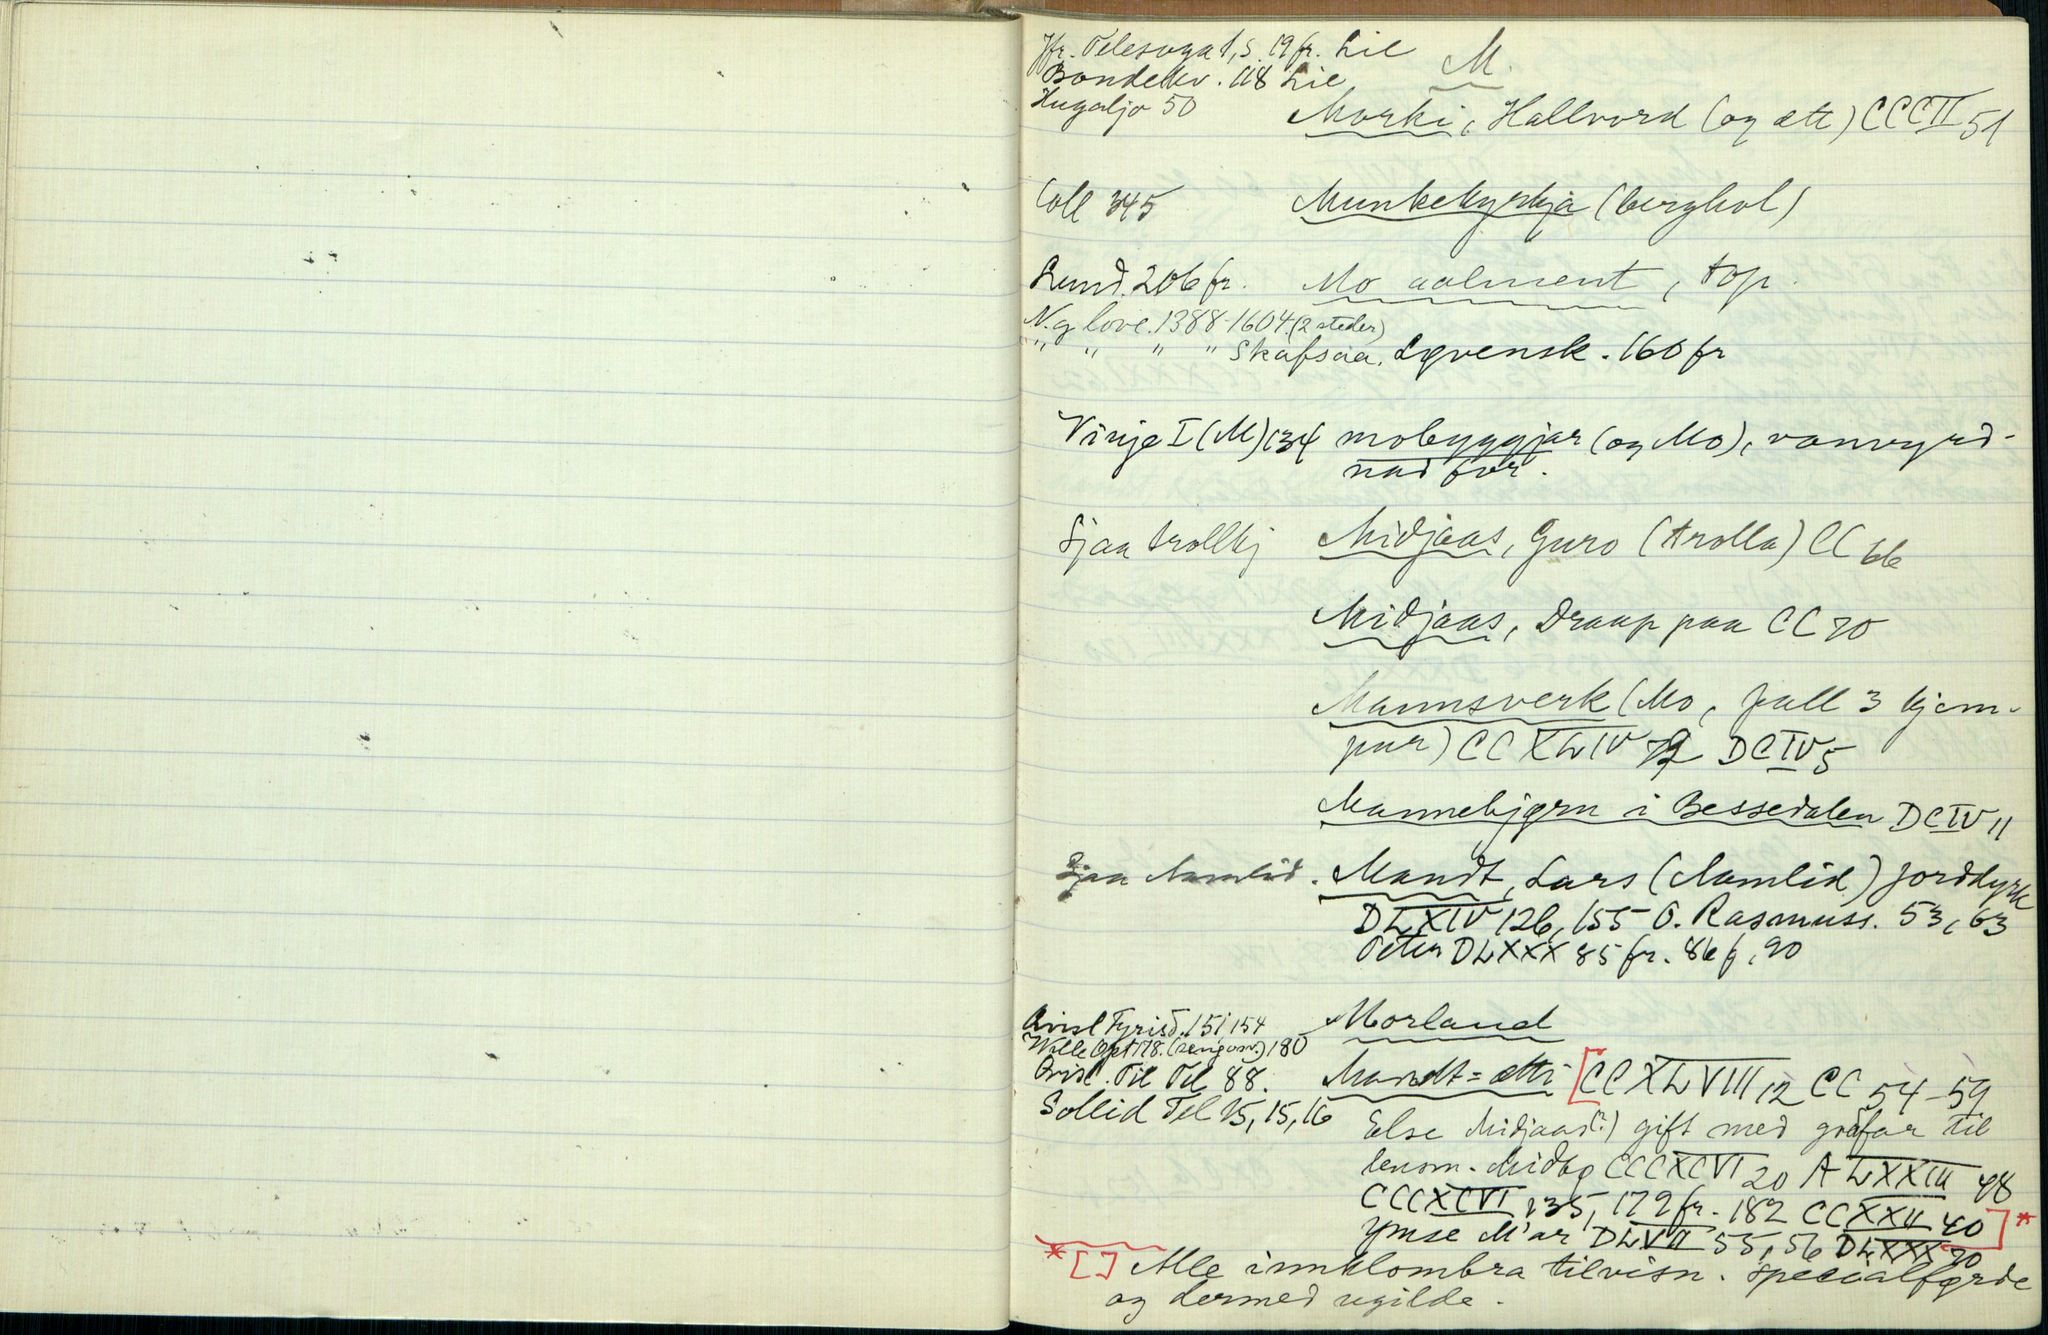 Jfr. Telesoga 1, s. 19 fr. Lie
Bondekv. 118 Lie
Hugaljo 50
M.
Morki, Hallvord (og ætt) CCCII 51
Coll 345 Munkekyrkja (berghol)
Lund. 206 fr. Mo aalment, top.
N. g. love. 1388-1604 (2 steder)
" " " " Skafsaa. Løvensk. 160 fr
Vinje I (M) 134 mobyggjar (og Mo), vanvyrd-
nad for.
Sjaa trollkj Midjaas, Guro (trolla) CC 66
Midjaas, Draap paa CC 70
Mannsverk (Mo, fall 3 kjem-
pur) CCXLIV 72 DCIV 5
Mannebjørn i Bessedalen DCIV 11
Sjaa Aamlid. Mandt, Lars (Aamlid) jorddyrk
DLXIV 126, 155 O. Rasmuss. 53, 63
Peter DLXXX 85 fr. 86 f, 90
Morland
Qvisl Fyrisd. 151, 154
Wille Opt 178. 180
Qvisl. Til Tel 88.
Sollid Tel 15, 15, 16
Mandt=ætti [CCXLVIII 12 CC 54-59
Else Midjaas (?) gift med grafar til
lensm. Midbø CCCXCVI 20 A LXXIII 48
CCCXCVI 135, 179 fr. 182 CCXXII 40]*
Ymse M'ar DLVII 55, 56 DLXXX 90
*[] Alle innklombra tilvisn. specialførde
og dermed ugilde.